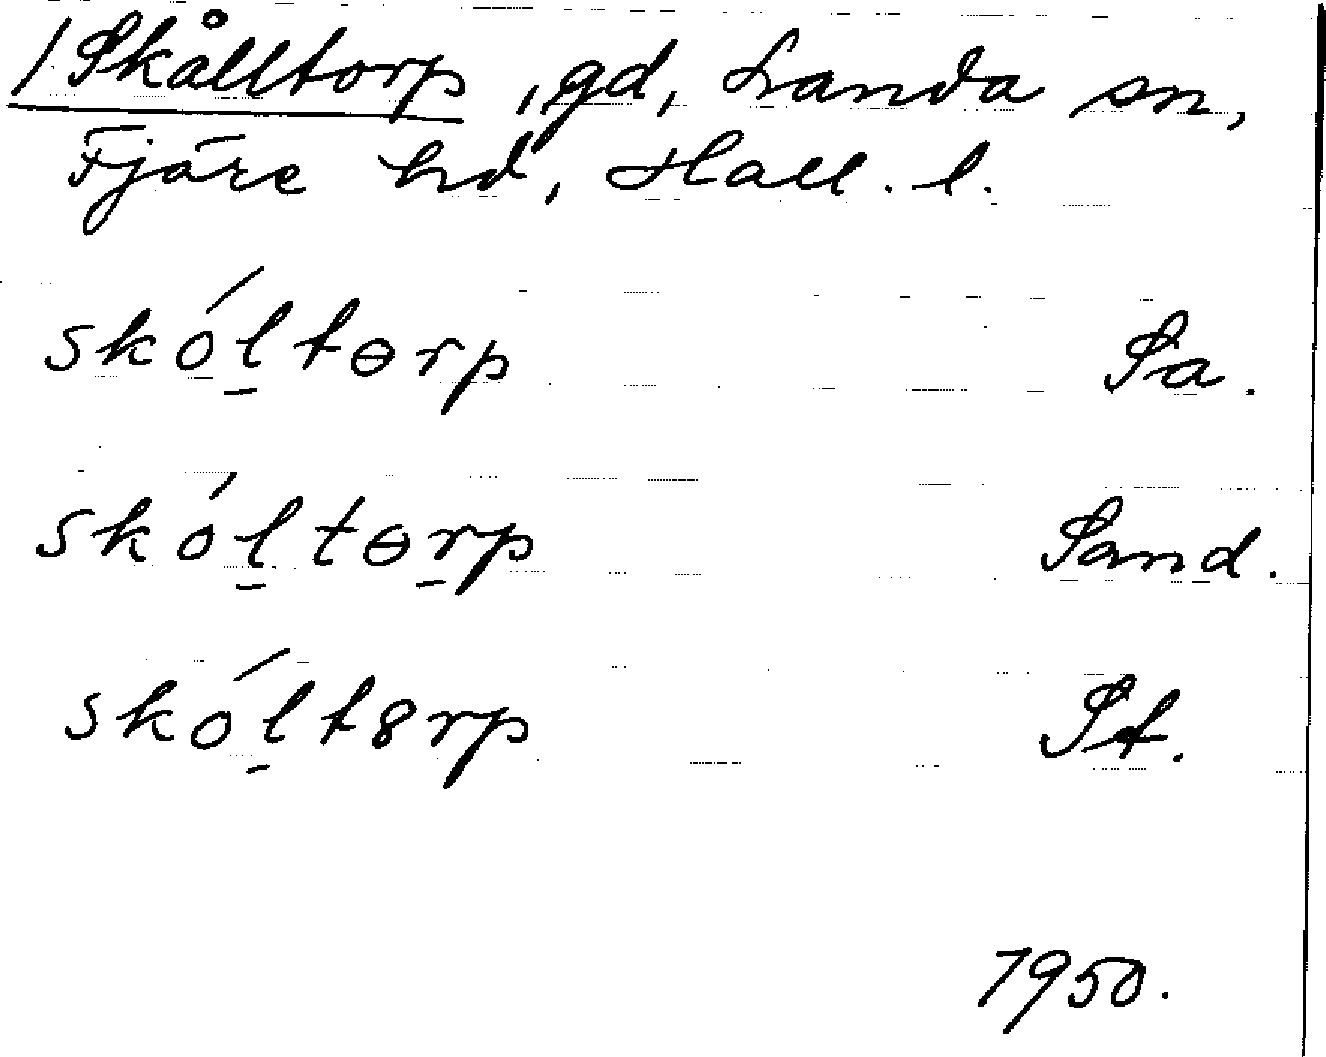 /Skålltorp, gd, Landa sn,
Fjäre hd, Hall. l.
skól̠tɵrp Sa.
skól̠tɵr̠p Sand.
skól̠t8rp St.
1950.